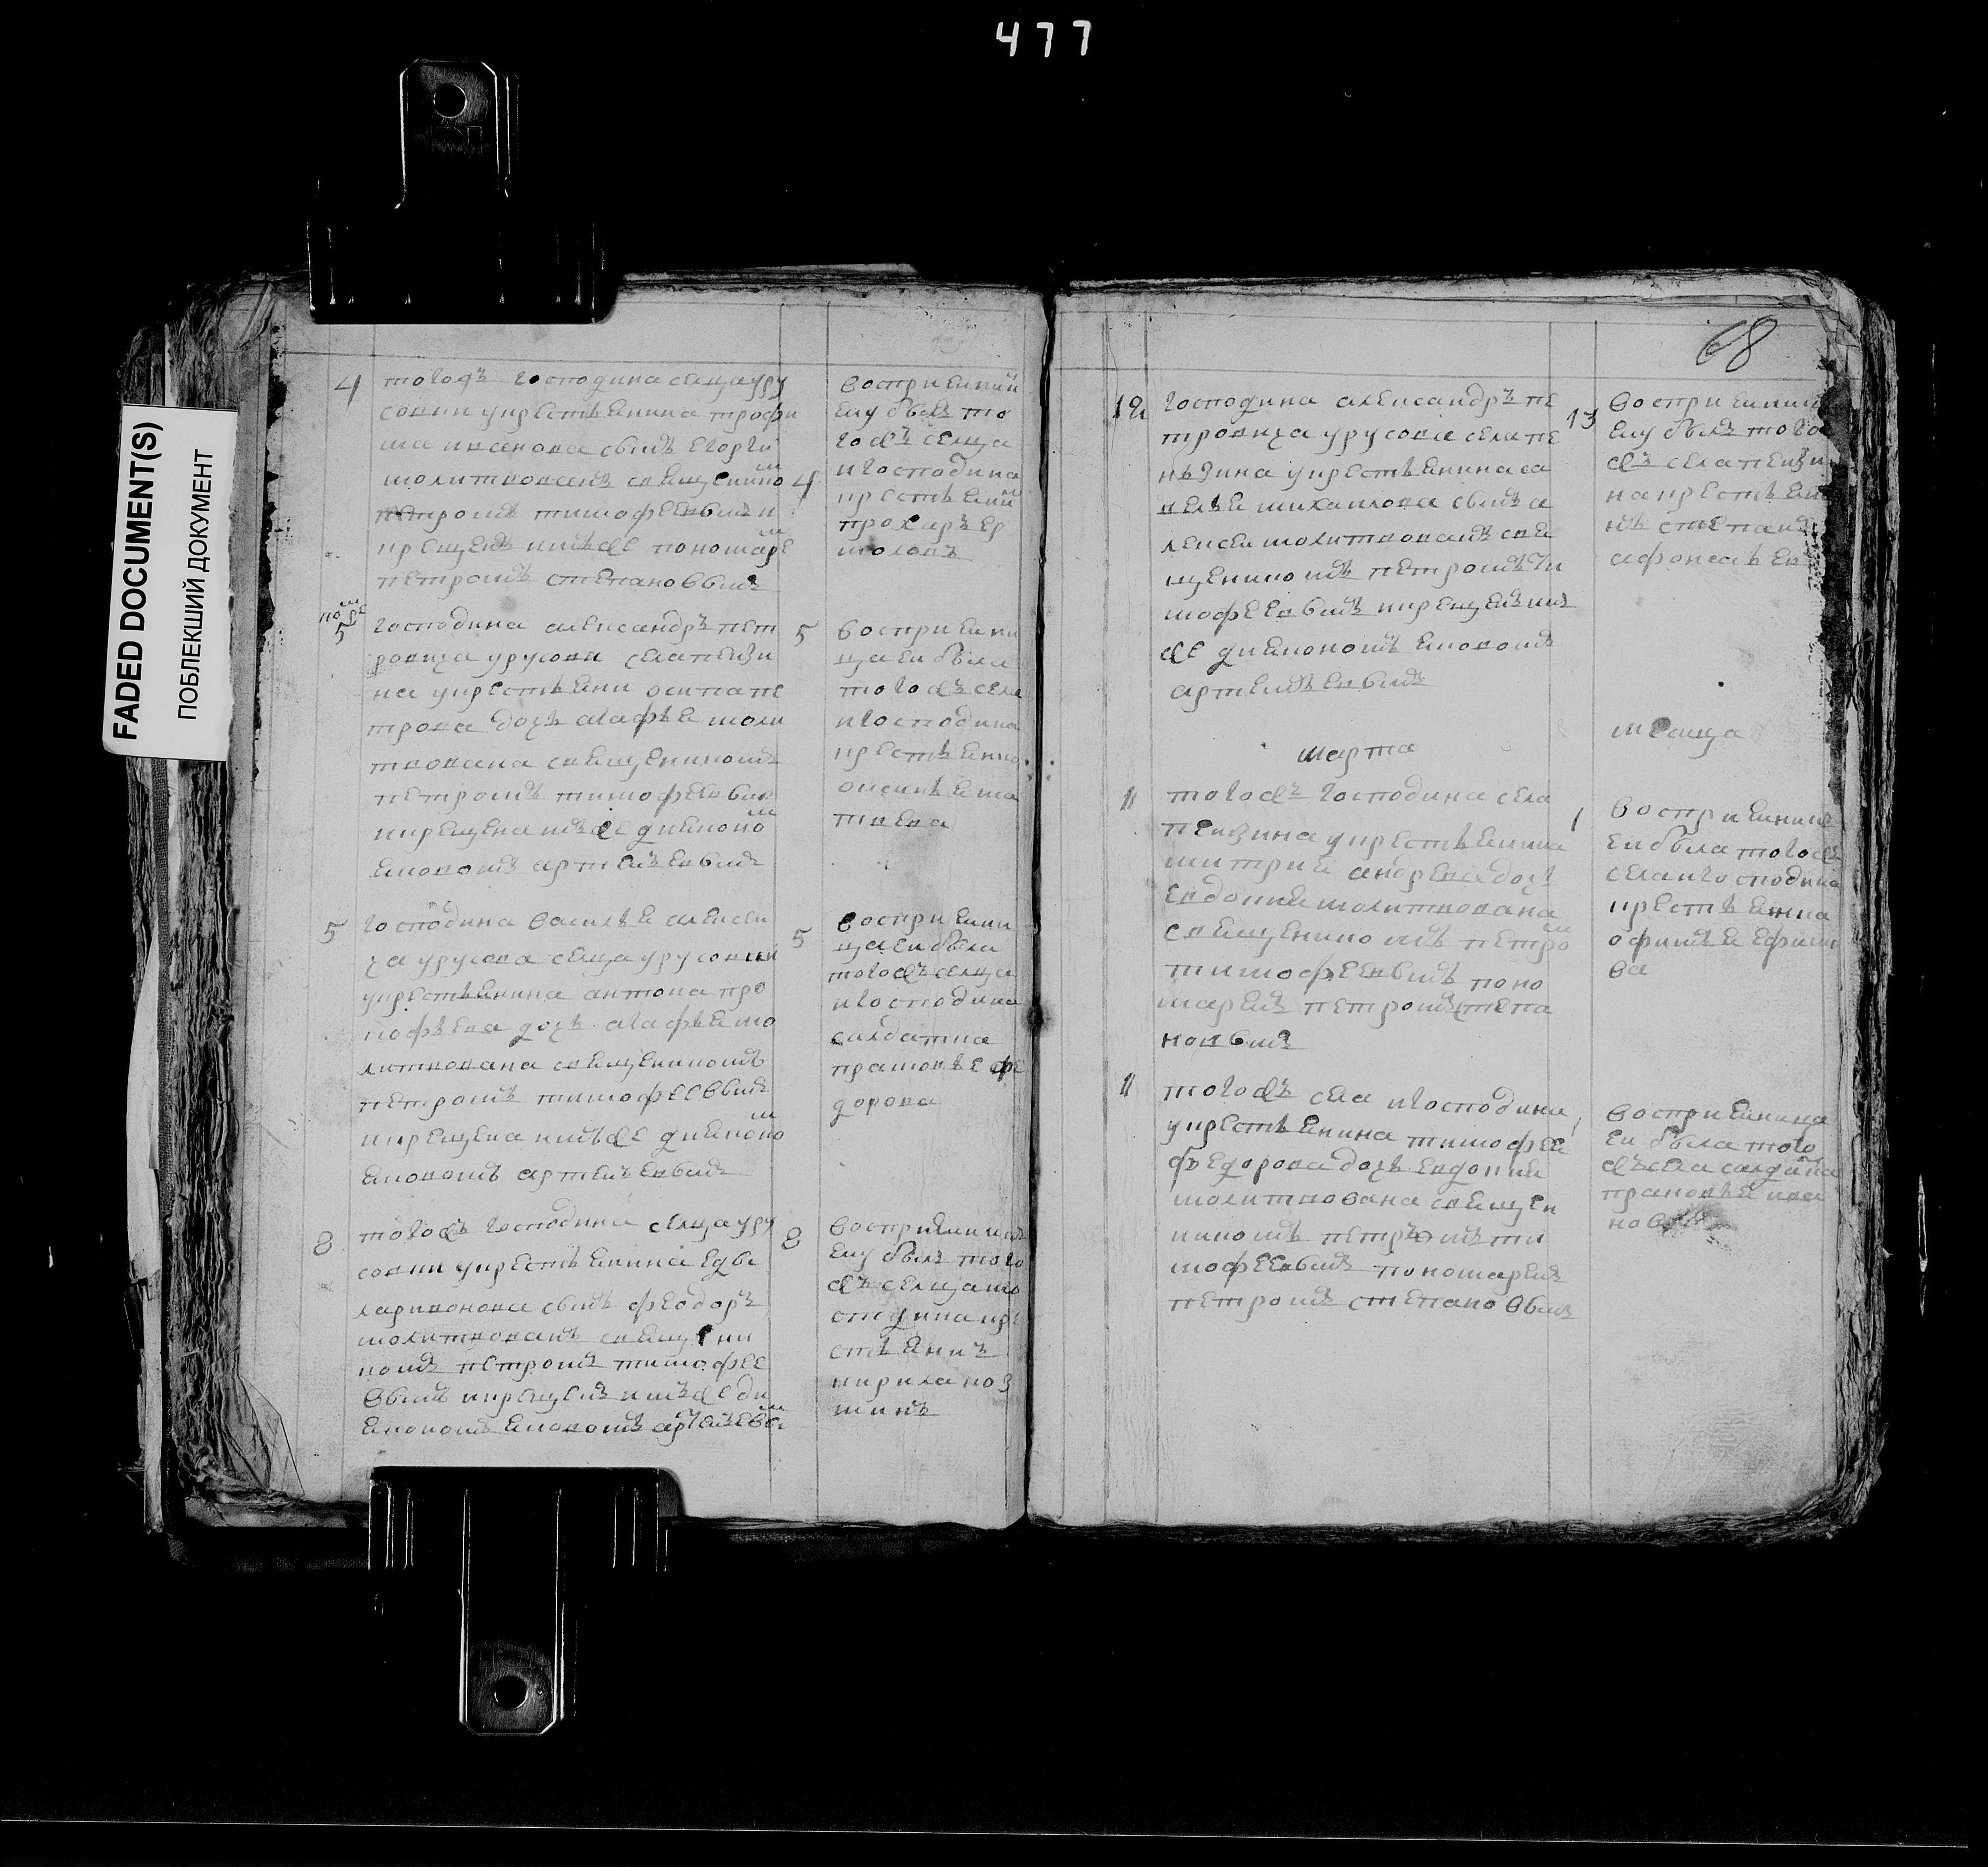 477
FADED DOCUMENT(S)
ПОБЛЕКШИЙ ДОКУМЕНТ
4
тогожъ господина селца уру
совки у крестьянина трофи
ма сынъ егорги
молитвованъ священико м
петромъ тимофеевымъ и
крещенъ имъ же пономаре м
петромъ степановвымъ
4
восприемник
ему былъ то
гожъ селца
и господина
крестьянин
прохаръ ер
молавъ
5
господина александръ пет
ровича урусова села пензи
на у крестьянина осипа пе
трова дочь агафья моли
твована священикомъ
петромъ тимофеевым
и крещена имъ же дияконо м
яковомъ артемъевымъ
5
восприемни
ца еи была
тогожъ села
и господина
крестьянка
аксинья ма
твева
5
господина василья алексеи
ча урусова селца урусовки
у крестьянина антона про
кофьева дочь агафья мо
литвована священикомъ
петромъ тимофееввымъ
и крещена имъ же дияконо м
яковомъ артемъевымъ
5
восприемни
ца еи была
тогожъ селца
и господина
салдатка
прасковье фе
дорова
8
тогожъ господина селца уру
совки у крестьянина
ларивонова сынъ феодоръ
молитвованъ священи
комъ петромъ тимофее
ввымъ и крещенъ имъ же ди
якономъ яковомъ артемъеввы м
8
восприемникъ
ему былъ того
жъ селца и го
сподина кре
стьянинъ
кирила коз
минъ
68
12
господина александръ пе
тровича урусова села пе
нзина у крестьянина са
велья михаилова сынъ а
лексеи молитвованъ свя
щеникомъ петромъ ти
мофеевымъ и крещенъ им
же дияконом яковомъ
артемъевымъ
13
восприемник
ему былъ того
жъ села пензи
на крестьяни
нъ степанъ
афонасьев
марта
месяца
1
тогожъ господина села
пензина у крестьянина
митрия андреева дочь
евдокия молитвована
священикомъ петро м
тимофеевымъ поно
маремъ петромъ степа
новымъ
1
восприемница
еи была тогожъ
села и господина
крестьянка
офимья ефимо
ва
1
тогожъ села и господина
у крестьянина тимофея
федорова дочь евдокия
молитвована священ
никомъ петромъ ти
мофеевымъ пономаремъ
петромъ степановвымъ
восприемница
еи была того
жъ села салдатка
прасковья ива
нова